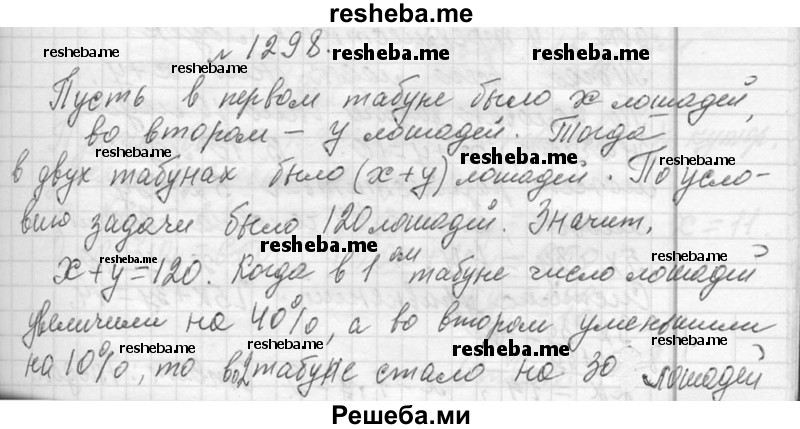 resheba.me
№1298.
Пусть в первом табуне было x лошадей,
во втором – y лошадей. Тогда
в двух табунах было (x+y) лошадей. По усло-
вию задачи было 120 лошадей. Значит,
x+y=120. Когда в 1ом табуне число лошадей
увеличили на 40%, а во втором уменьшили
на 10%, то во 2 табуне стало на 30 лошадей
resheba.me resheba.me resheba.me
resheba.me
resheba.me resheba.me resheba.me
resheba.me
resheba.me resheba.me
resheba.me resheba.me resheba.me
Решеба.ми